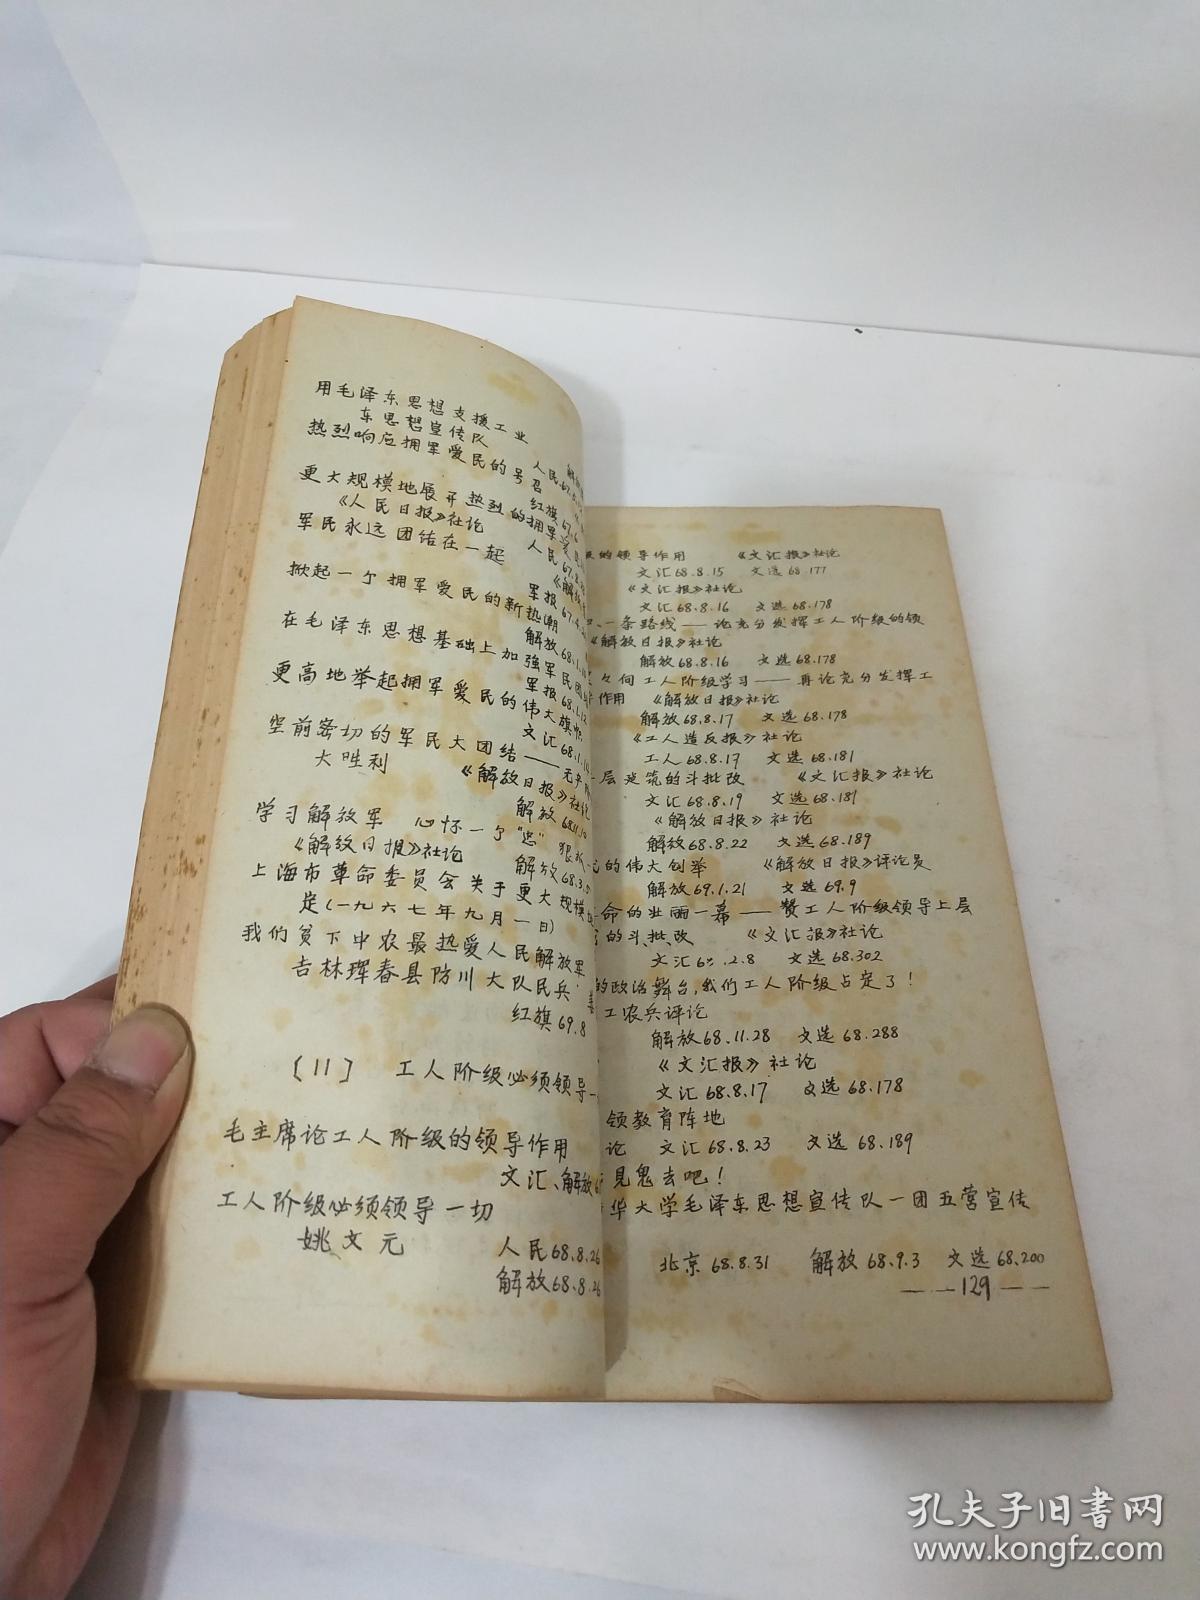 用毛泽东思想支援工业
东思想宣传队
人民67.
热烈响应拥军爱民的号召
红旗67.6
更大规模地展开热烈的拥军爱
《人民日报》社论 人民67.8.
军民永远团结在一起 《解放
军报67.4.
掀起一个拥军爱民的新热潮
解放68.1.
在毛泽东思想基础上加强军民团
军报68.1.12
更高地举起拥军爱民的伟大旗帜
文汇68.1.
空前密切的军民大团结——无产阶
大胜利 《解放日报》社论
解放68.11.10
学习解放军 心怀一个"忠" 狠抓一
《解放日报》社论 解放68.3.
上海市革命委员会关于更大规模
定(一九六七年九月一日)
我们贫下中农最热爱人民解放军
吉林珲春县防川大队民兵
红旗69.8
〔11〕 工人阶级必须领导一
毛主席论工人阶级的领导作用
文汇、解放6
工人阶级必须领导一切
姚文元 人民68.8.26
解放68.8.26
的领导作用 《文汇报》社论
文汇68.8.15 文选68.177
《文汇报》社论
文汇68.8.16 文选68.178
一条路线——论充分发挥工人阶级的领
《解放日报》社论
解放68.8.16 文选68.178
々向工人阶级学习——再论充分发挥工
作用 《解放日报》社论
解放68.8.17 文选68.178
《工人造反报》社论
工人68.8.17 文选68.181
层建筑的斗批改 《文汇报》社论
文汇68.8.19 文选68.181
《解放日报》社论
解放68.8.22 文选68.189
的伟大创举 《解放日报》评论员
解放69.1.21 文选69.9
命的壮丽一幕——赞工人阶级领导上层
的斗、批、改 《文汇报》社论
文汇6 .2.8 文选68.302
的政治舞台,我们工人阶级占定了!
工农兵评论
解放68.11.28 文选68.288
《文汇报》社论
文汇68.8.17 文选68.178
领教育阵地
论 文汇68.8.23 文选68.189
见鬼去吧!
华大学毛泽东思想宣传队一团五营宣传
北京68.8.31 解放68.9.3 文选68.200
——129——
孔夫子旧书网
www.kongfz.com